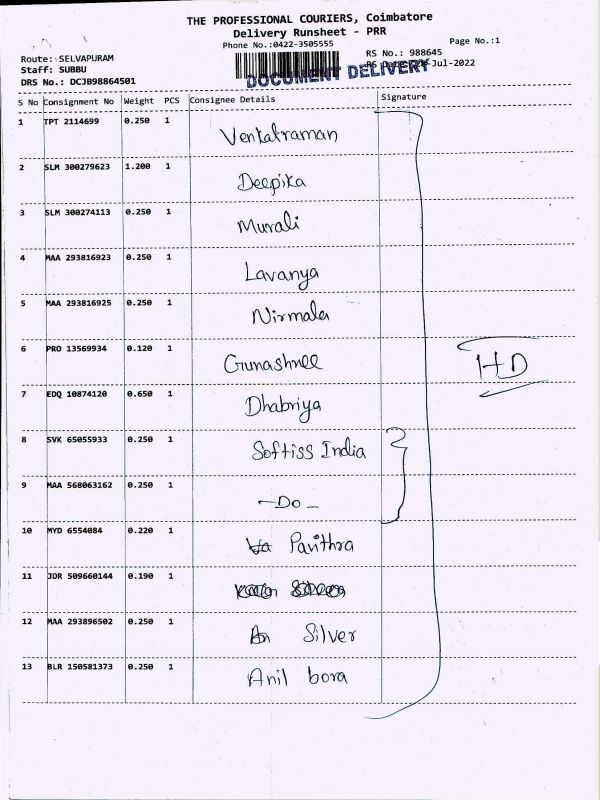 THE PROFESSIONAL COURIERS, Coimbatore
Delivery Runsheet - PRR
Phone No.:0422-3505555
Page No.:1
Route: SELVAPURAM
RS No.: 988645
Staff: SUBBU
Jul-2022
DOCUMENT DELIVERY
DRS No.: DCJB98864501
S No Consignment No Weight PCS Consignee Details Signature
1 TPT 2114699 0.250 1 Ventatraman
2 SLM 300279623 1.200 1 Deepika
3 SLM 300274113 0.250 1 Murali
4 MAA 293816923 0.250 1 Lavanya
5 MAA 293816925 0.250 1 Nirmala
6 PRO 13569934 0.120 1 Gunashree
HD
7 EDQ 10874120 0.650 1 Dhabriya
8 SVK 65055933 0.250 1 Softiss India
9 MAA 568063162 0.250 1 -Do-
10 MYD 6554084 0.220 1 Pavithra
11 JDR 509660144 0.190 1
12 MAA 293896502 0.250 1 Silver
13 BLR 150581373 0.250 1 Anil bora